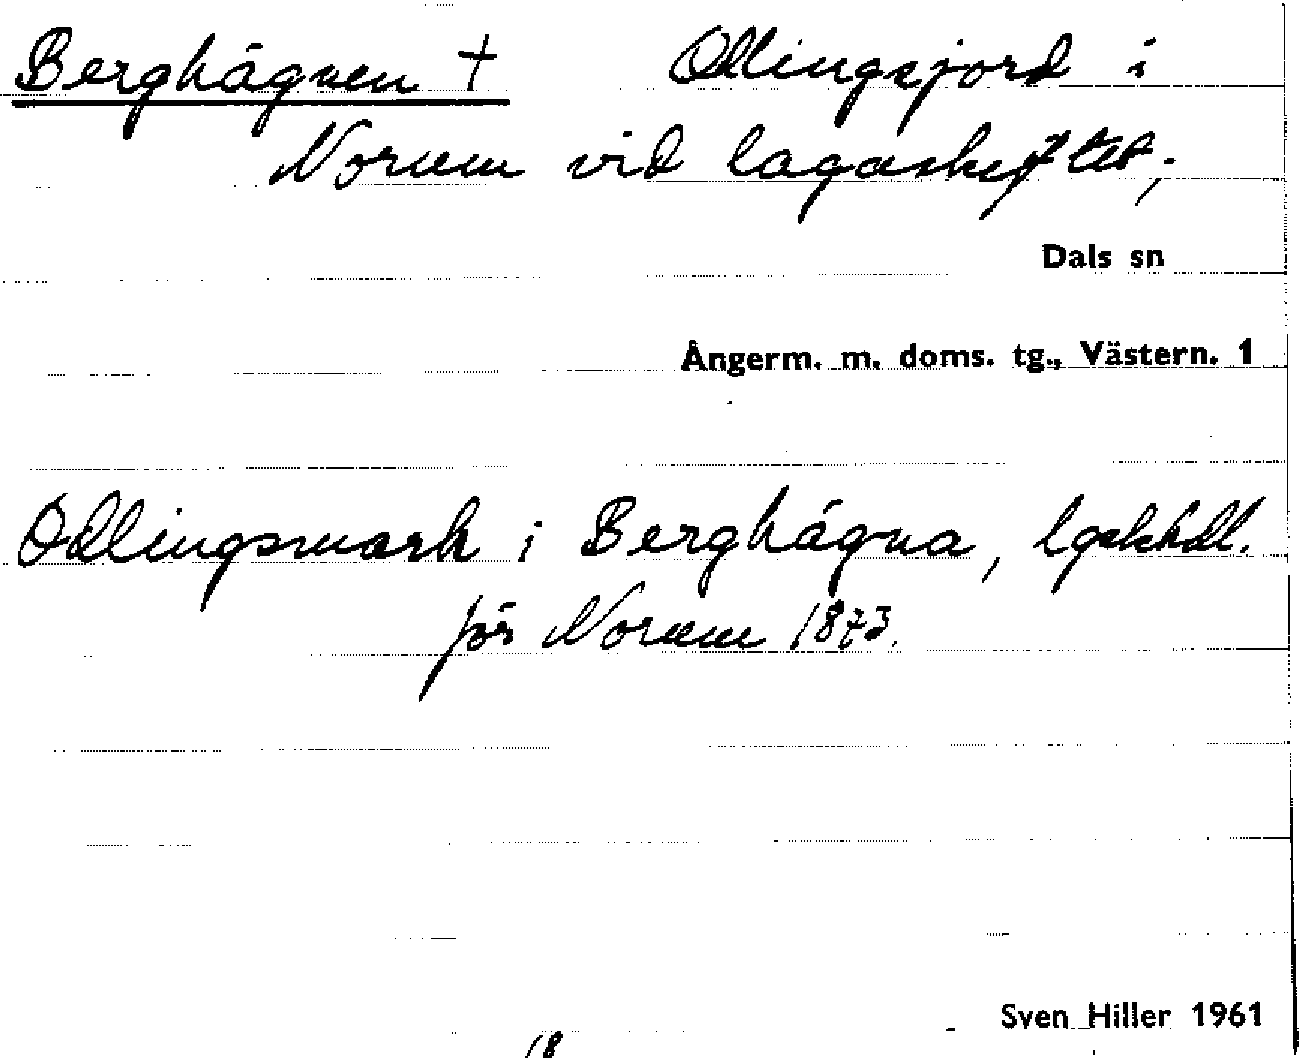 Berghägnen † Odlingsjord i
Norum vid lagaskiftet;
Dals sn
Ångerm. m. doms. tg., Västern. 1
Odlingsmark i Berghägna, lgskhdl.
för Norum 1873.
Sven Hiller 1961
18